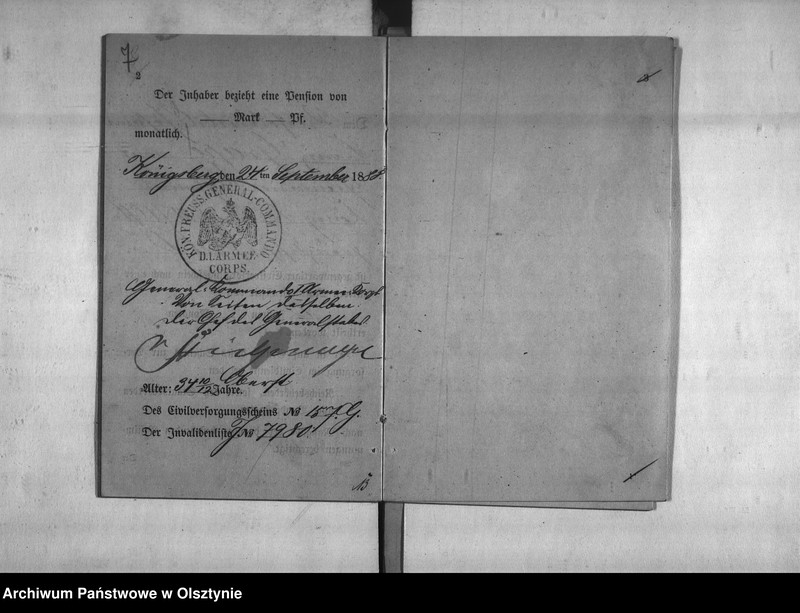 7
2
Der Inhaber bezieht eine Pension von
Mark Pf.
monatlich.
Königsberg den 24 ten September 1888.
KÖN. PREUSS. GENERAL-COMMANDO
D. I. ARMEE
CORPS.
General-Commando I Armee-Corps.
Von Seiten desselben
Der Chef des Generalstabes
v
Oberst
Alter: 34 10/12 Jahre.
Des Civilversorgungsscheins № 157 G.
Der Invalidenliste J № 7980.
Archiwum Państwowe w Olsztynie